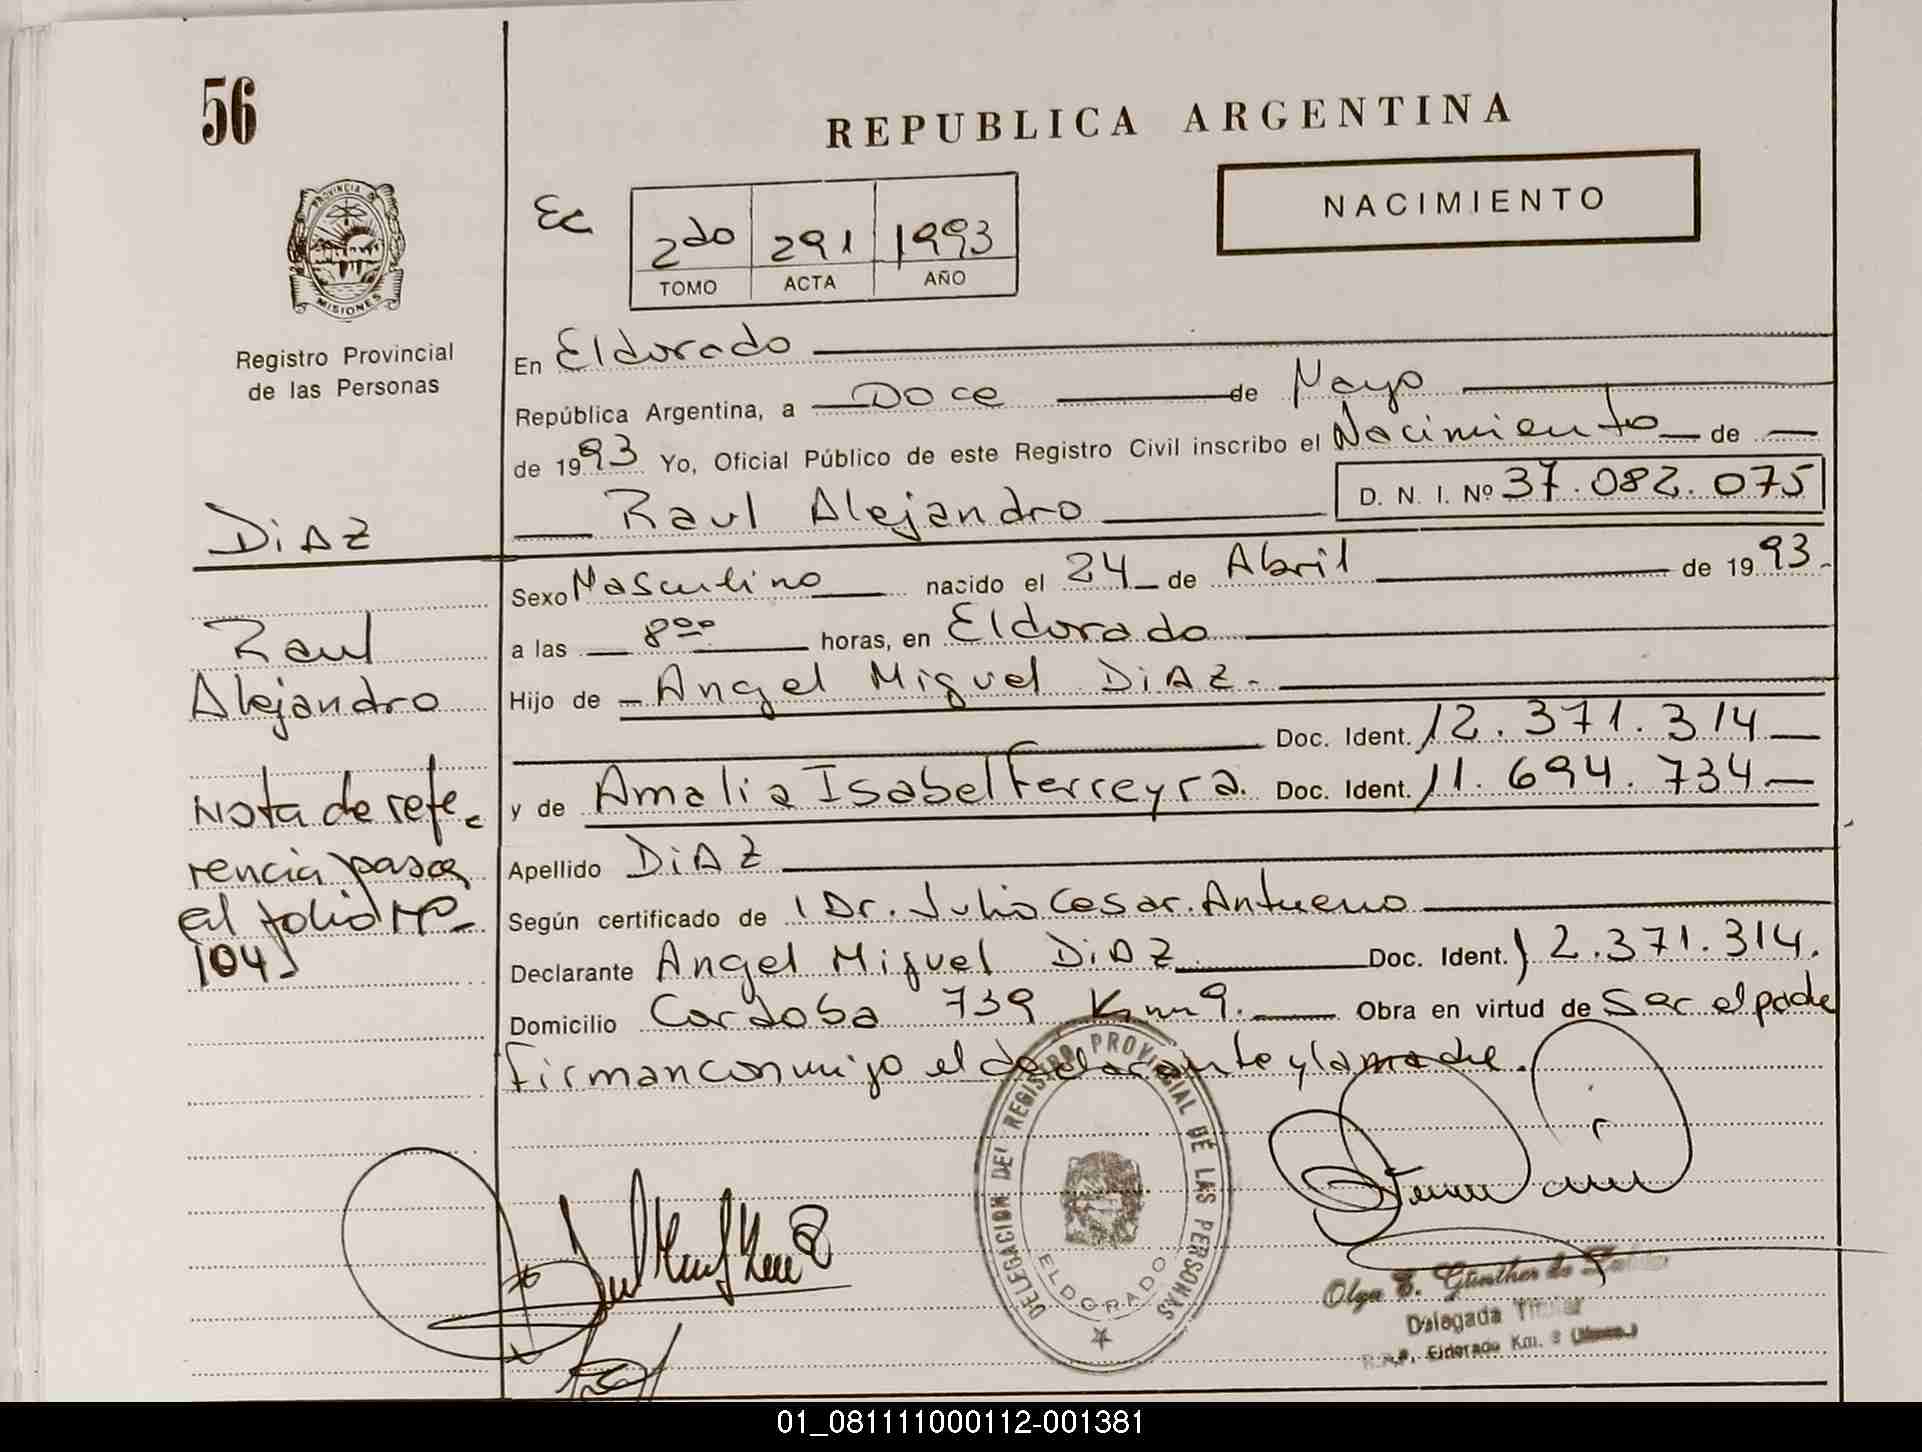 56
REPUBLICA ARGENTINA
NACIMIENTO
PROVINCIA DE
MISIONES
Registro Provincial
de las Personas
Ec
2do 291 1993
TOMO ACTA AÑO
En Eldorado
República Argentina, a Doce de Mayo
de 1993 Yo, Oficial Público de este Registro Civil inscribo el Nacimiento de
Raul Alejandro D. N. I. Nº 37.082.075
Sexo Masculino nacido el 24 de Abril de 1993.
a las 8 00 horas, en Eldorado
Hijo de Angel Miguel DiAZ.
Doc. Ident. 12.371.314
y de Amalia Isabel Ferreyra. Doc. Ident. 11.694.734
Apellido DiAZ
Según certificado de Dr. Julio Cesar
Declarante Angel Miguel DiAZ Doc. Ident. 12.371.314.
Domicilio Cordoba 739 Km 9. Obra en virtud de Ser el padre
firman conmigo el declarante y la madre.
DiAZ
Raul
Alejandro
Nota de refe
rencia pasa
al folio Nº
104
DELEGACION DEL REGISTRO PROVINCIAL DE LAS PERSONAS
ELDORADO
Olga E. Günther de
Delegada Titular
R.P.P. Eldorado Km. 9
01_081111000112-001381